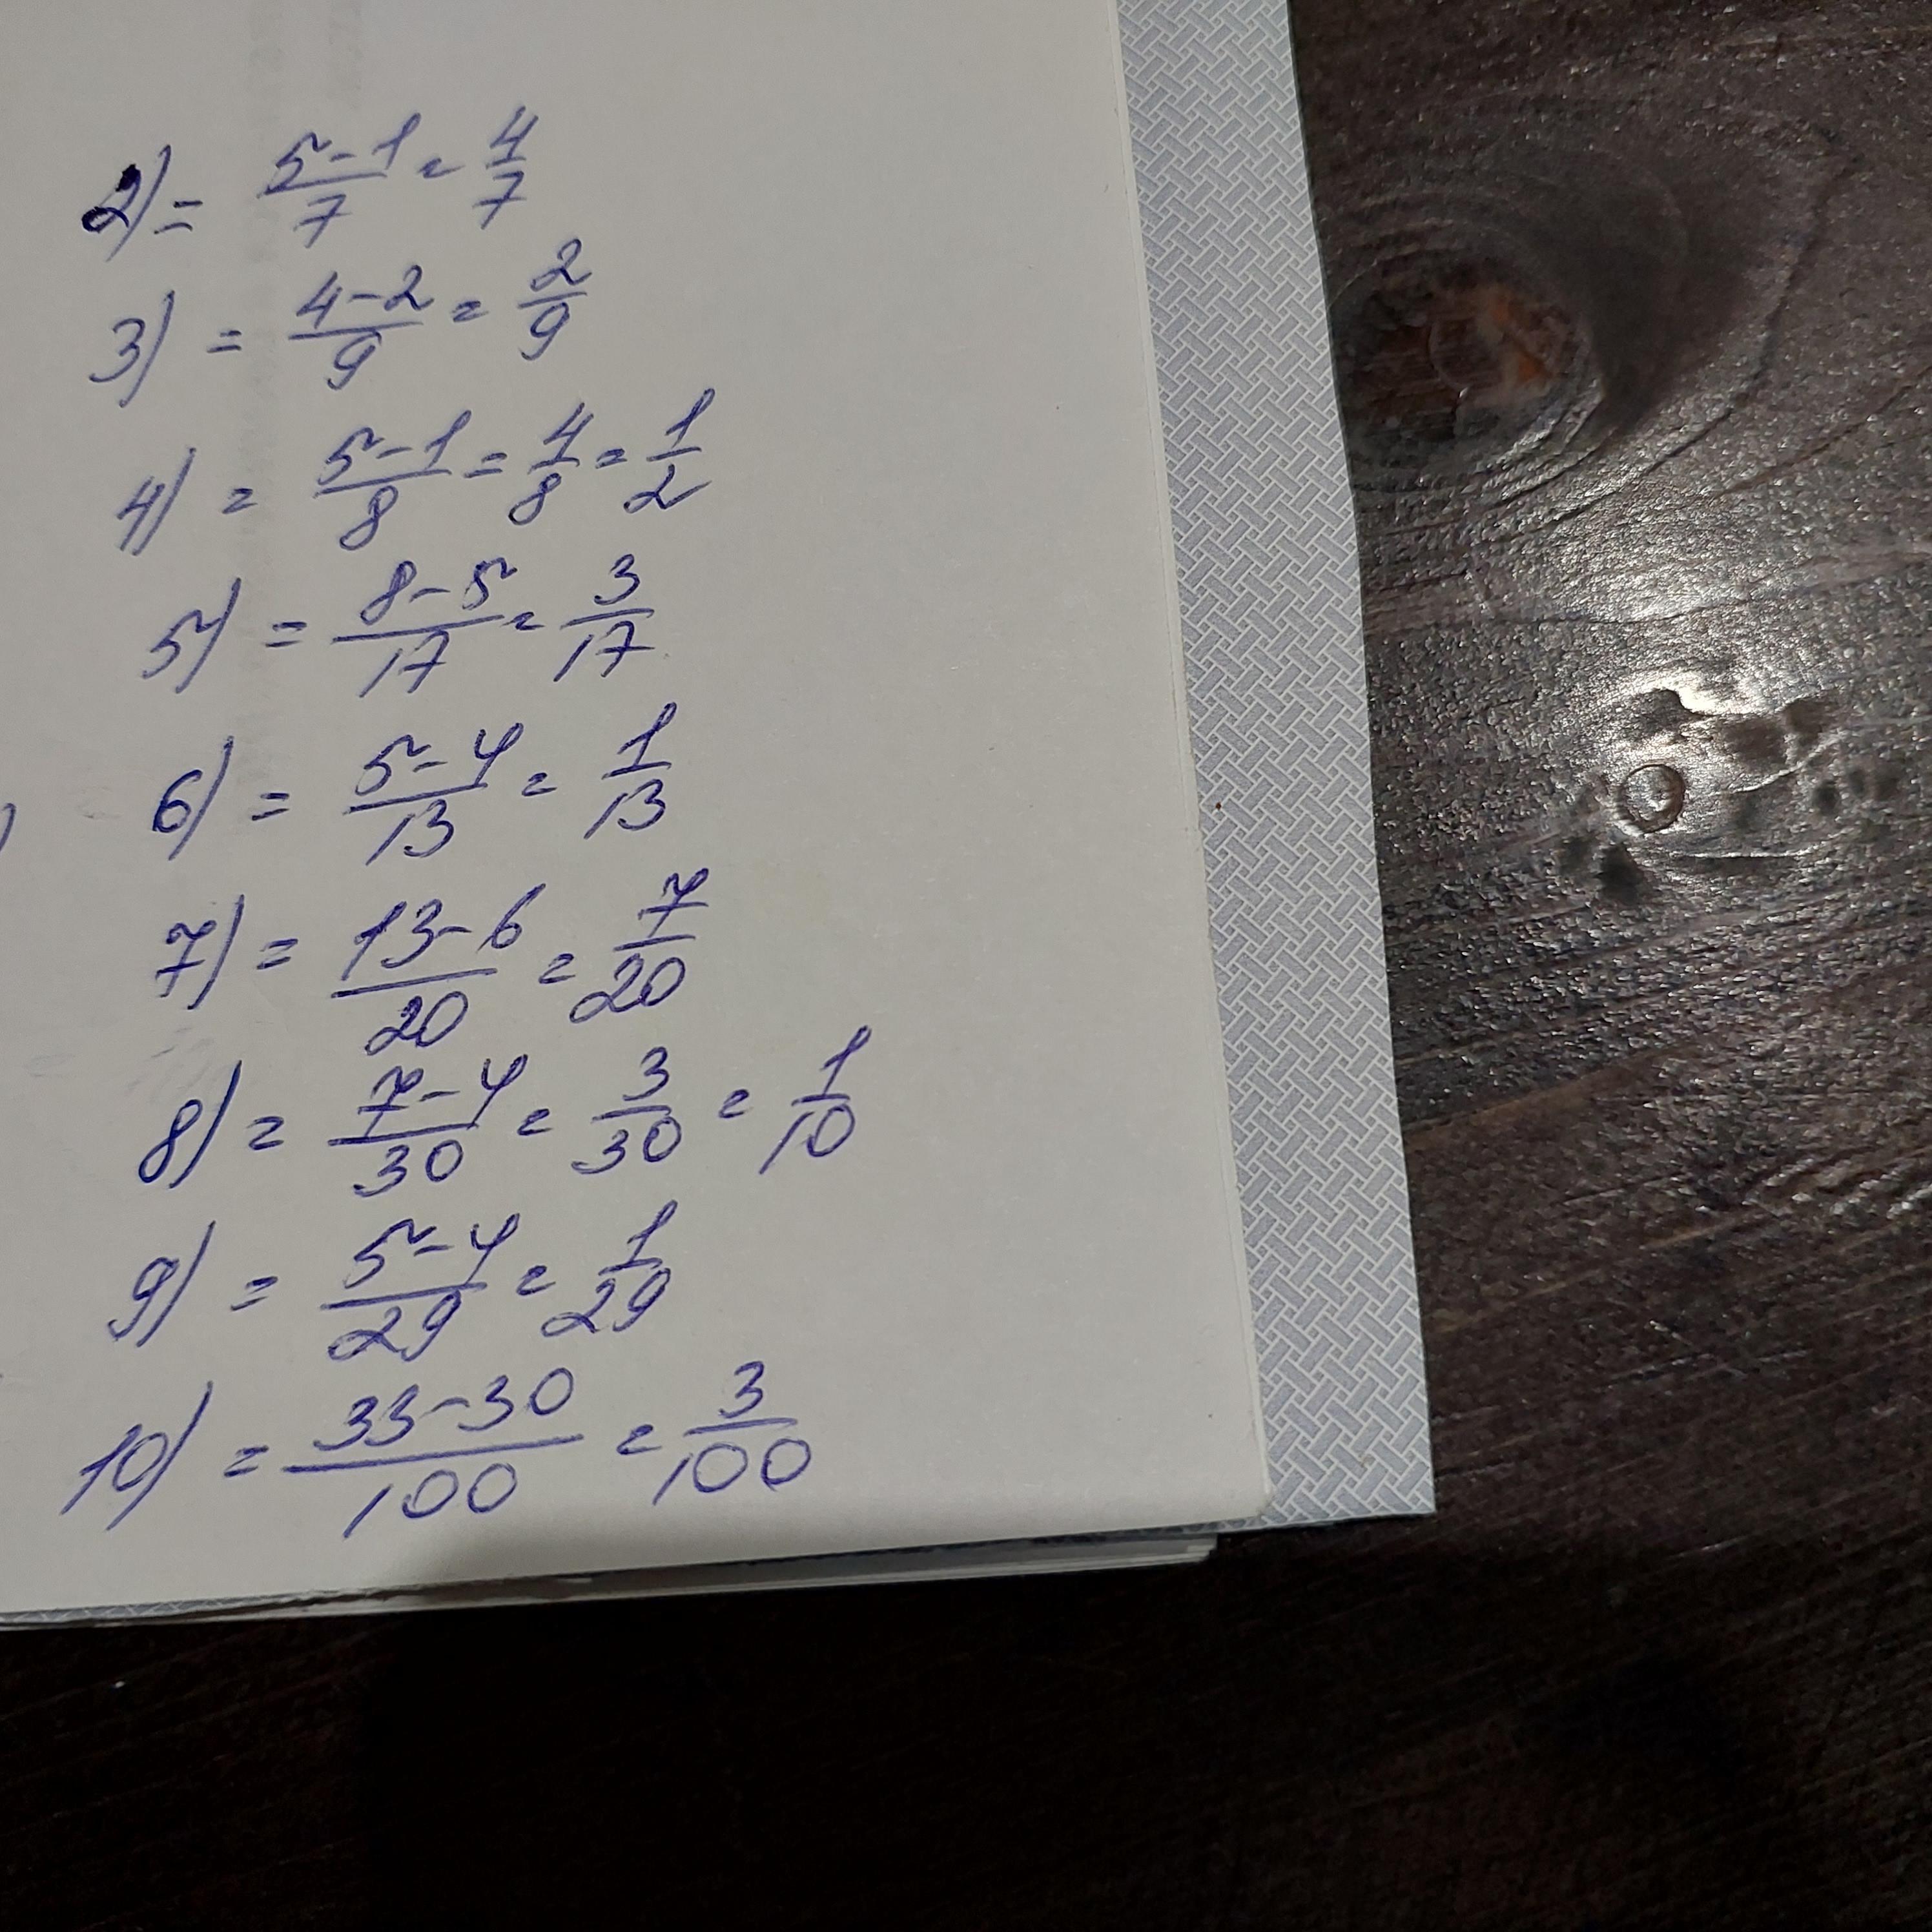 2) = 5-1/7 = 4/7
3) = 4-2/9 = 2/9
4) = 5-1/8 = 4/8 = 1/2
5) = 8-5/17 = 3/17
6) = 5-4/13 = 1/13
7) = 13-6/20 = 7/20
8) = 7-4/30 = 3/30 = 1/10
9) = 5-4/29 = 1/29
10) = 33-30/100 = 3/100